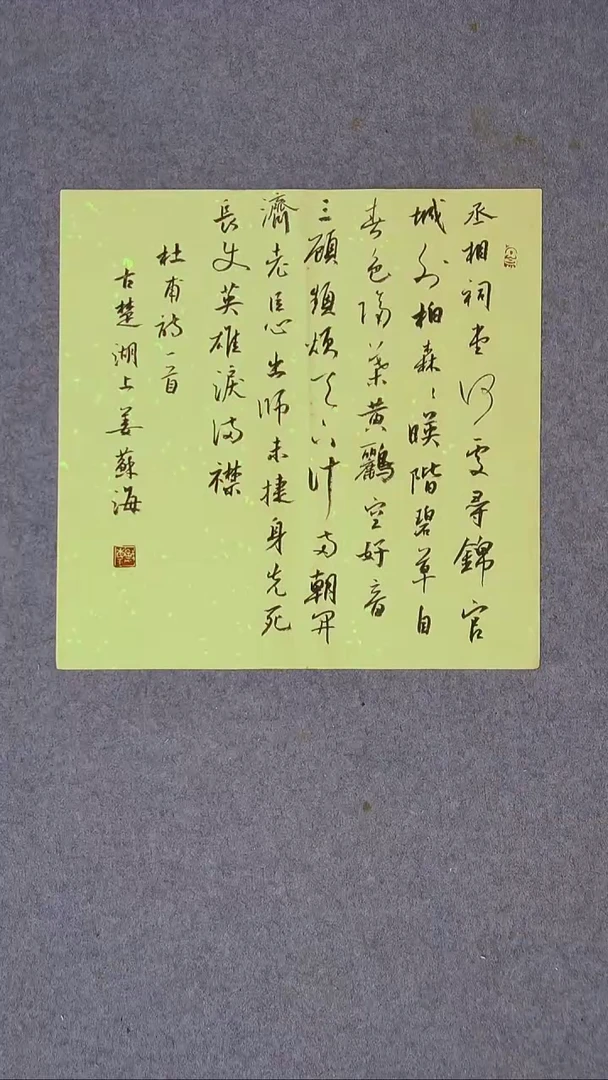 丞相祠堂何處尋錦官
城外柏森〻映階碧草自
春色隔葉黃鸝空好音
三顧頻煩天下計兩朝開
濟老臣心出師未捷身先死
長使英雄淚滿襟
杜甫詩一首
古楚湖上姜蘇海